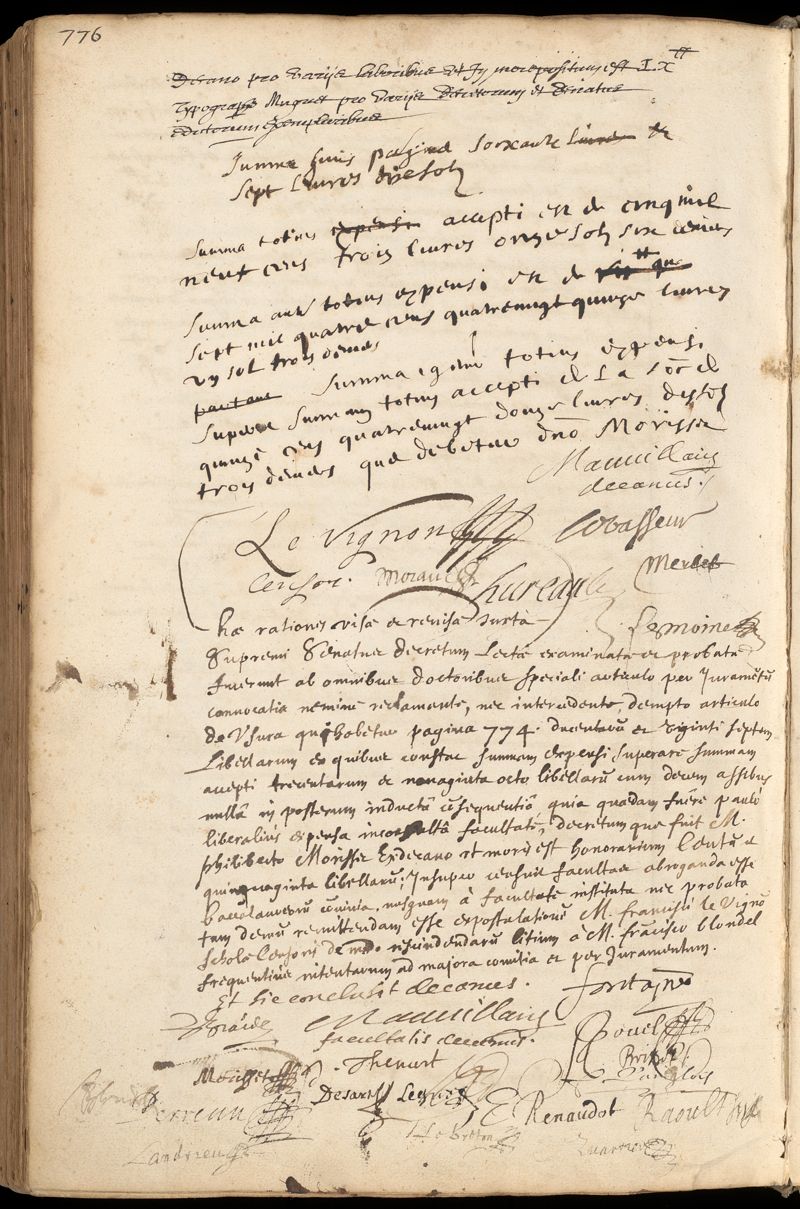 776
Decano pro varijs laboribus et
Typograp. Muguet pro varijs decretorum et
exemplaribus
Summa huius pagina soixante livres &
sept livres dix sols
Summa totius expensi accepti est de cinq mil
neuf cens trois livres onze sols six deniers
Summa autem totius expensi est de
sept mil quatre cens quatrevingt quinze livres
un sol trois deniers
partant Summa igitur totius expensi
superat summam totius accepti de la so de
quinze cens quatrevingt douze livres dix sols
trois deniers que debetur dno Morisset
Mauvillain
decanus.
Le Vignon Levasseur
Censor. Morand Hureault Merlet
hæ rationes visæ et revisæ juxta Lemoine
Supremi Senatus decretum Lecta examinatæ et probatæ
fuerunt ab omnibus doctoribus speciali articulo per Juramentū
convocatis nemine reclamante, nec intercedente, dempto articulo
de Usura qui habetur pagina 774. ducentarū et viginti septem
Libellarum ex quibus constat summam expensi superare summam
accepti trecentarum et nonaginta octo libellarū cum decem assibus
nullā in posterum inductā consequentiā, quia quædam fuēre paulò
liberaliùs expensa inconsultâ facultate, decretumque fuit M.
philiberto Morisset Exdecano ut moris est honorarium Centū et
quinquaginta libellarū; Insuper censuit facultas abroganda esse
baccalaureorū convivia, nusquam à facultate instituta nec probata
tum demū remittendam esse expostulationē M. francisci le Vignō
scholæ Censoris de modo rescindendarū litium à M. frācisco blondel
frequentius intentarum ad majora comitia et per Juramentum.
Et sic conclusit decanus. fontaine
Mauvillain
facultatis decanus.
Mousset Thevart
Brisset
Langlois
Perreau Desarss Legris E Renaudot Raoult
Landrieu Le Breton